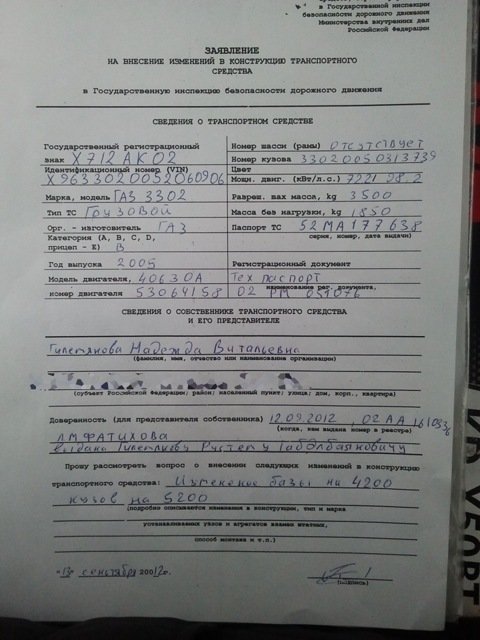 в Государственной инспекции
безопасности дорожного движения
Министерства внутренних дел
Российской Федерации
ЗАЯВЛЕНИЕ
НА ВНЕСЕНИЕ ИЗМЕНЕНИЙ В КОНСТРУКЦИЮ ТРАНСПОРТНОГО
СРЕДСТВА
в Государственную инспекцию безопасности дорожного движения
СВЕДЕНИЯ О ТРАНСПОРТНОМ СРЕДСТВЕ
Государственный регистрационный
знак Х712АК02
Идентификационный номер (VIN)
Х9633020052060906
Марка, модель ГАЗ 3302
Тип ТС Грузовой
Орг. - изготовитель ГАЗ
Категория (А, В, С, D,
прицеп - Е) В
Год выпуска 2005
Модель двигателя, 40630А
номер двигателя 53064158
Номер шасси (рамы) отсутствует
Номер кузова 33020050313739
Цвет
Мощн. двиг. (кВт/л.с.)
Разреш. мах масса, kg 3500
Масса без нагрузки, kg 1850
Паспорт ТС 52МА177638
серия, номер, дата выдачи)
Регистрационный документ
Тех паспорт
наименование рег. документа,
02 РМ 051076
СВЕДЕНИЯ О СОБСТВЕННИКЕ ТРАНСПОРТНОГО СРЕДСТВА
И ЕГО ПРЕДСТАВИТЕЛЕ
Надежда Витальевна
(фамилия, имя, отчество или наименование организации)
(субъект Российской Федерации/ район/ населенный пункт/ улица/ дом, корп., квартира)
Доверенность (для представителя собственного) 12.09.2012 02 АА
(когда, кем выдана номер в реестра)
Л.М.ФАТИХОВА
выдана
Прошу рассмотреть вопрос о внесении следующих изменений в конструкцию
транспортного средства: базы на 4200
кузов на 5200
(подробно описывается изменения в конструкции, тип и марка
устанавливаемых узлов и агрегатов взамен штатных,
способ монтажа и т.п.)
"13" сентября 20012г.
(подпись)